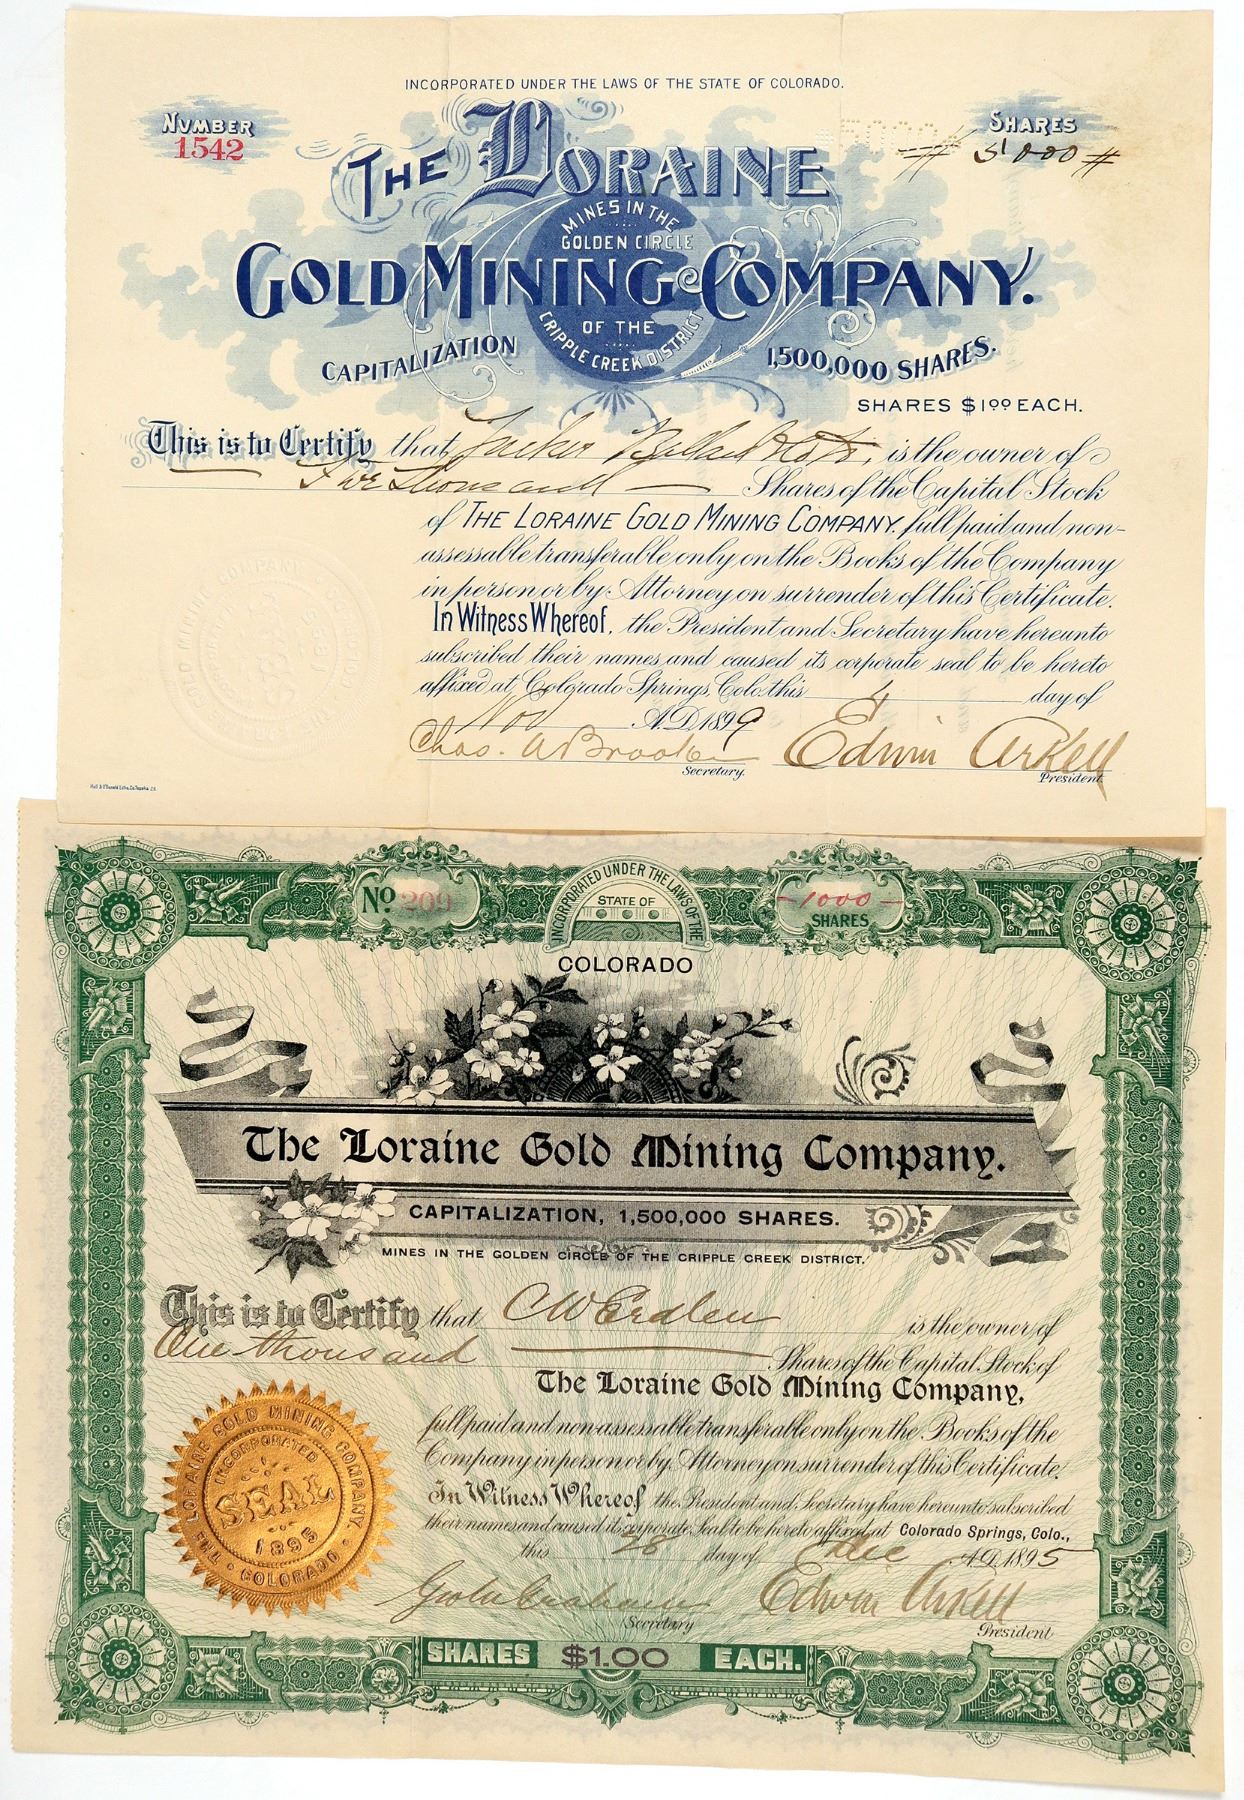 INCORPORATED UNDER THE LAWS OF THE STATE OF COLORADO.
NUMBER
1542
SHARES
# 5000 #
THE LORAINE
MINES IN THE
GOLDEN CIRCLE
GOLD MINING COMPANY.
OF THE
CRIPPLE CREEK DISTRICT
CAPITALIZATION
1,500,000 SHARES.
SHARES $1.00 EACH.
This is to Certify that is the owner of
Five Thousand Shares of the Capital Stock
of THE LORAINE GOLD MINING COMPANY. full paid and non-
assessable transferable only on the Books of the Company
in person or by Attorney on surrender of this Certificate.
In Witness Whereof, the President and Secretary have hereunto
subscribed their names and caused its corporate seal to be hereto
affixed at Colorado Springs, Colo. this 4 day of
Nov A.D. 1899
Chas. A Brooker Edwin Arkell
Secretary. President.
No 209
INCORPORATED UNDER THE LAWS OF THE
STATE OF
COLORADO
1000
SHARES
The Loraine Gold Mining Company.
CAPITALIZATION, 1,500,000 SHARES.
MINES IN THE GOLDEN CIRCLE OF THE CRIPPLE CREEK DISTRICT.
This is to Certify that C W Erdlen is the owner of
One thousand Shares of the Capital Stock of
The Loraine Gold Mining Company,
full paid and non-assessable transferable only on the Books of the
Company in person or by Attorney on surrender of this Certificate.
In Witness Whereof the President and Secretary have hereunto subscribed
their names and caused its corporate Seal to be hereto affixed at Colorado Springs, Colo.,
this 28 day of Dec A.D. 1895
Edwin Arkell
Secretary
President
THE LORAINE GOLD MINING COMPANY.
INCORPORATED
SEAL
1895
COLORADO
SHARES $1.00 EACH.